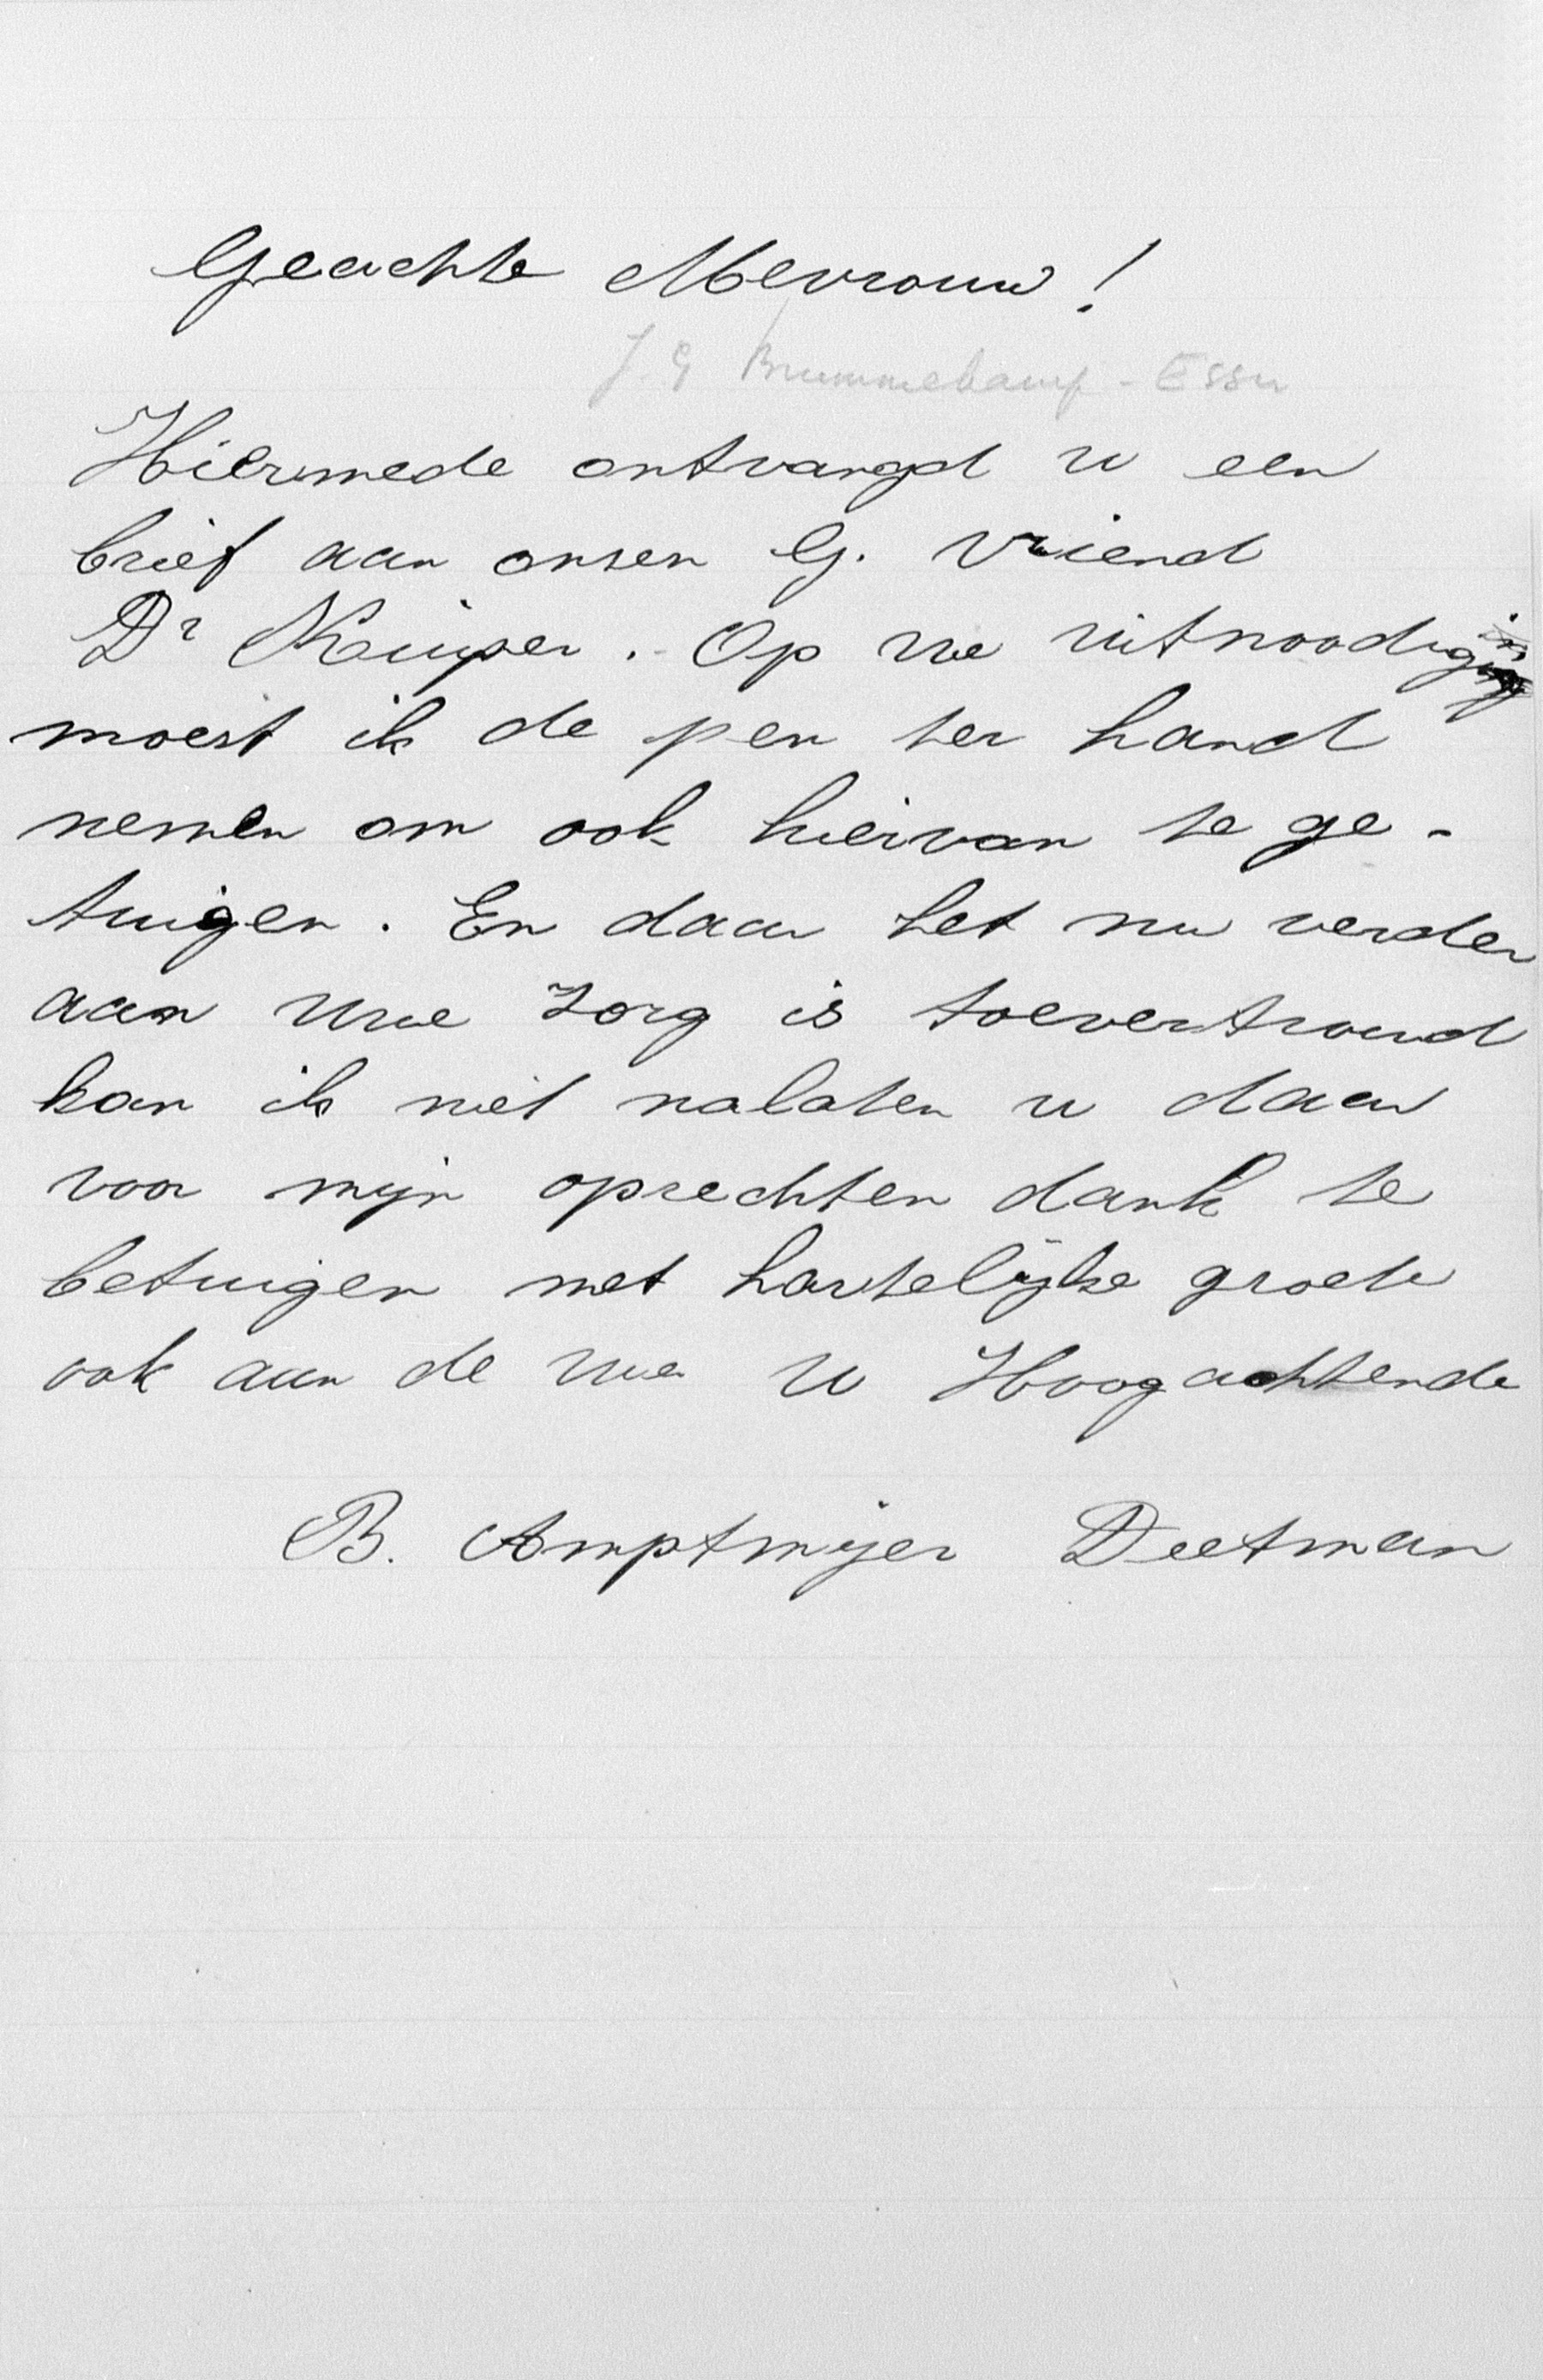 Geachte Mevrouw!
J. G Brummelkamp - Esser
Hiermede ontvangd u een
brief aan onsen G. vriend
Dr Kuiper. Op uwe uitnoodiging
moest ik de pen ter hand
nemen om ook hiervan te ge-
tuigen. En daar het nu verder
aan Uwe zorg is toevertrouwd
kan ik niet nalaten u daar
voor mijn oprechten dank te
betuigen met hartelijke groete
ook aan de uwe U Hoogachtende
B. Amptmijer Deetman